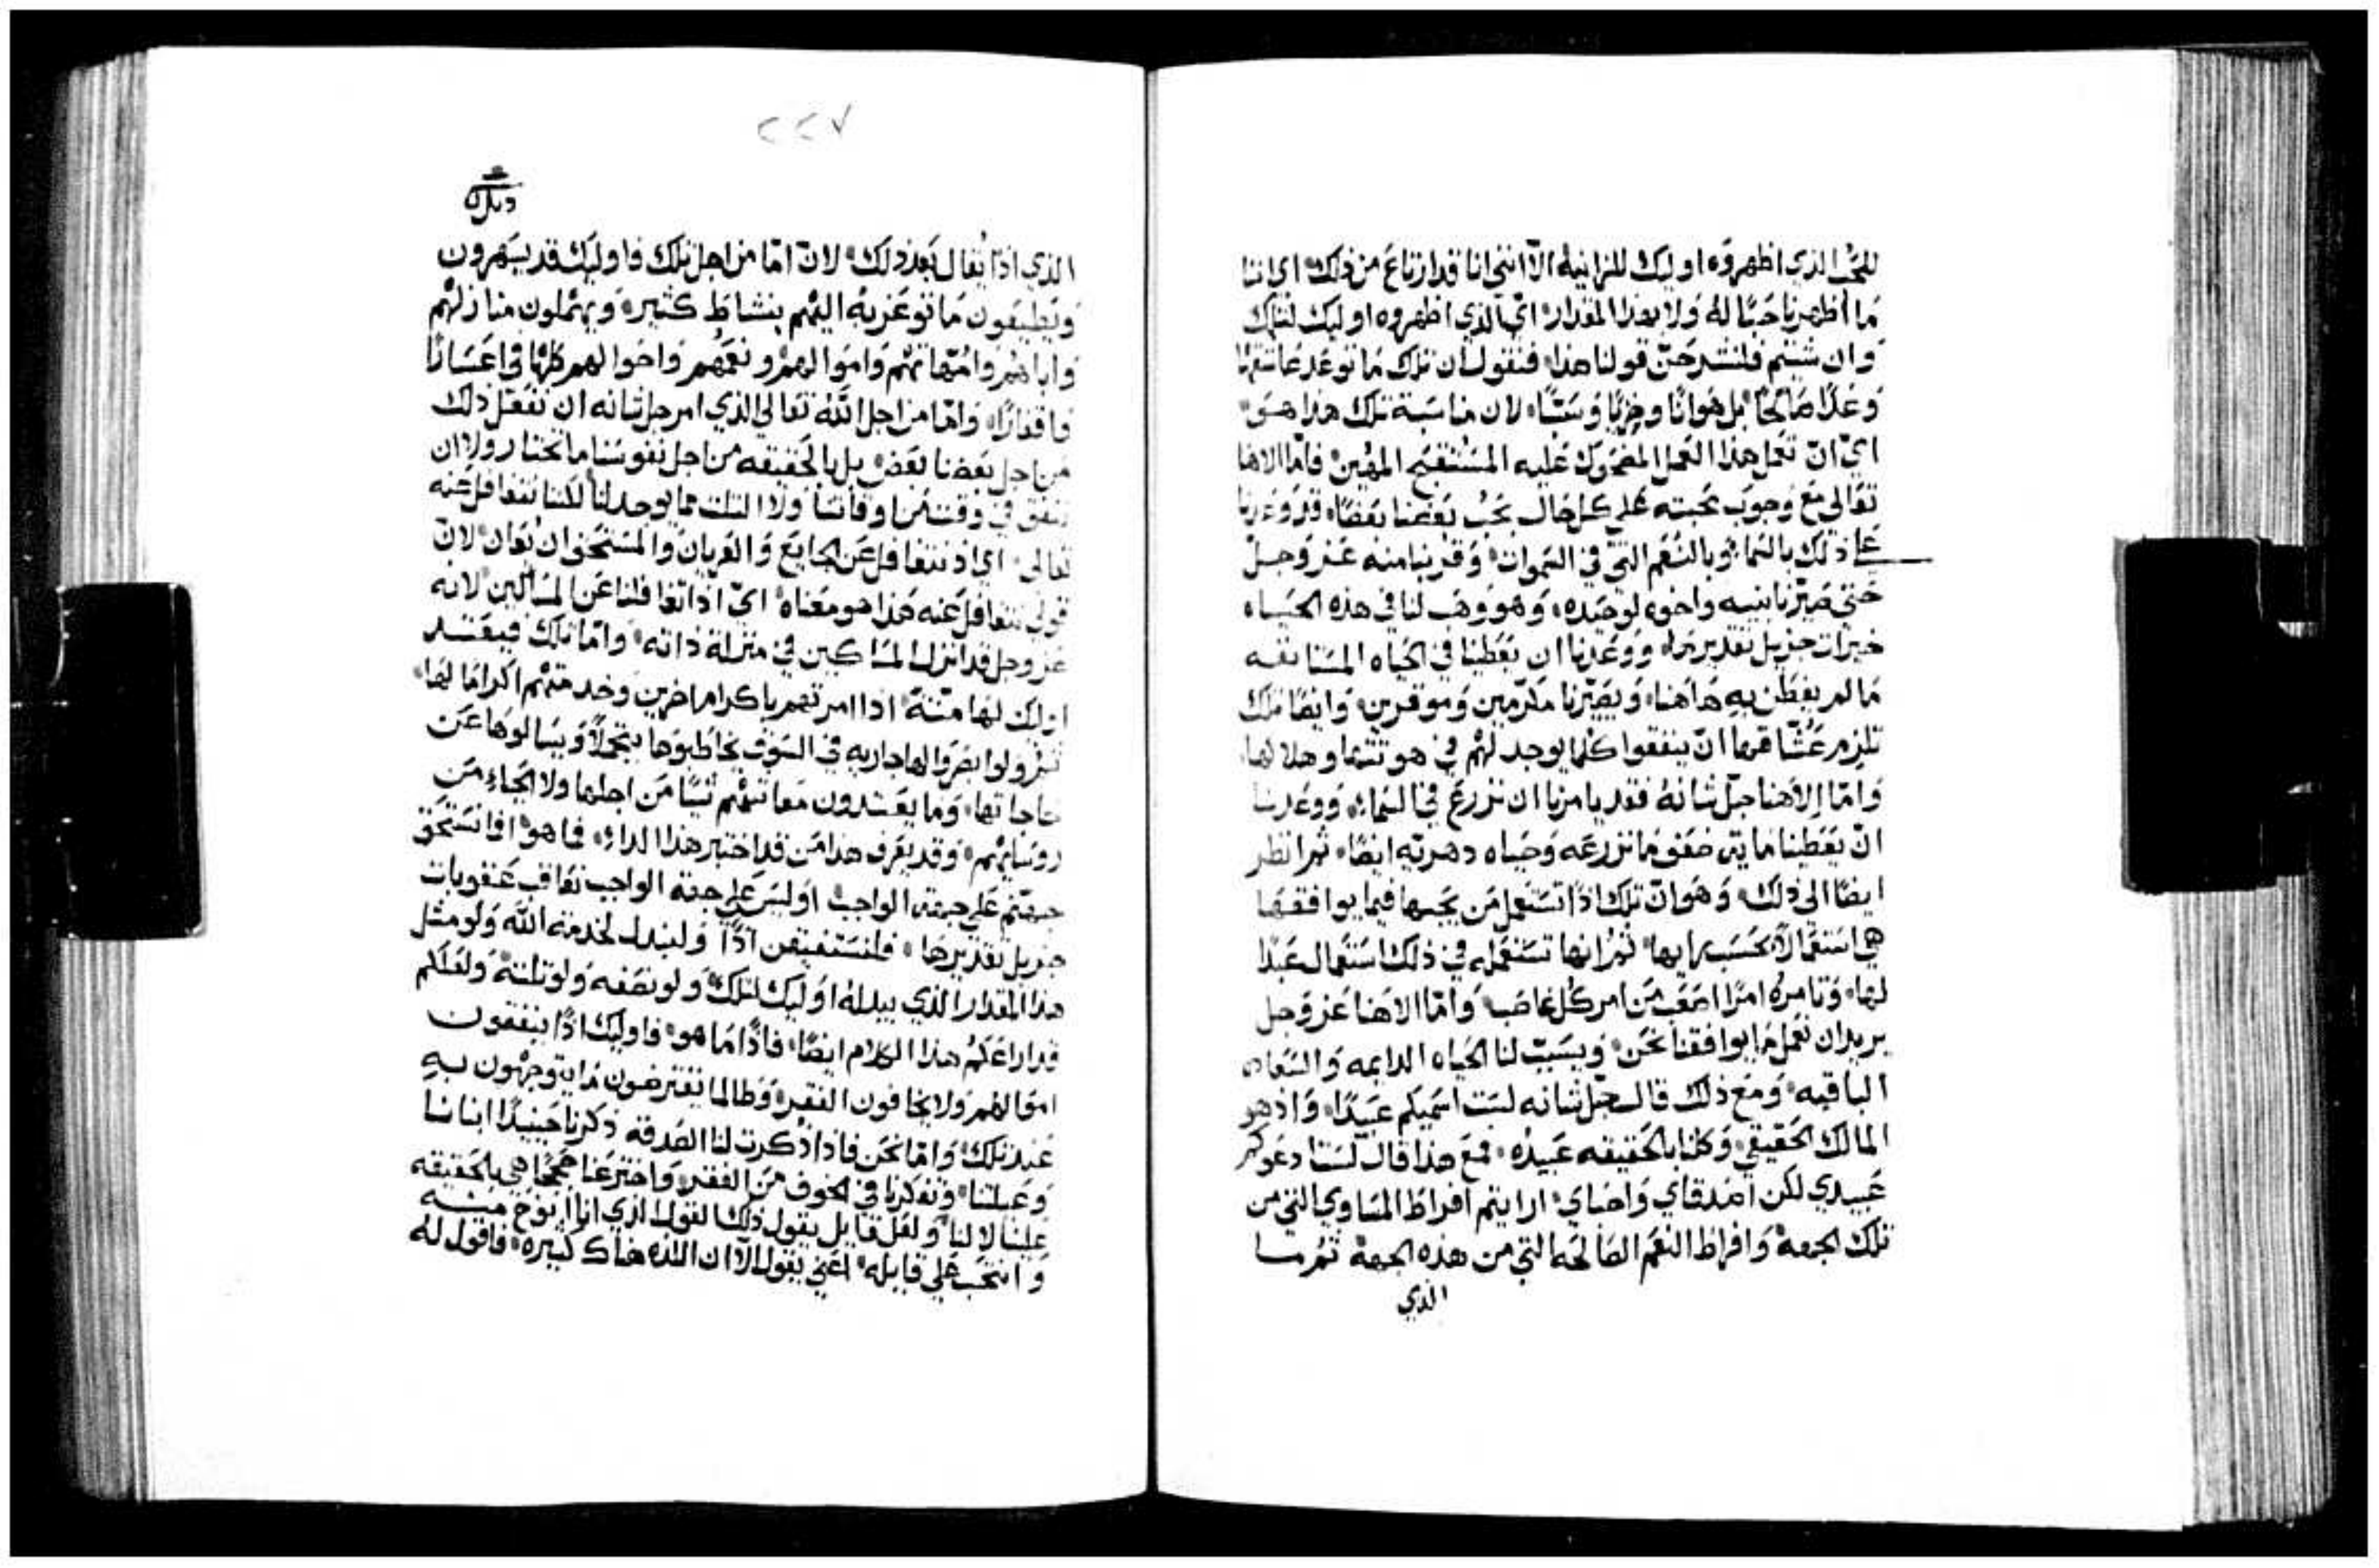 للحب الذي اظهروه اوليك للزانيه الا انني انا قد ارتاع من ذلك اي اننا
ما اظهرنا حبًا له ولا بهذا المقدار اي الذي اظهروه اوليك لتلك
وان شيتم فلنشرحن قولنا هذا فنقول ان تلك ما توعد عاشقها
وعدًا صالحًا بل هوانًا وخزيًا وشتًا لان مناسبة تلك هذا هو
اي ان تعمل هذا العمل المضحوك عليه المستقبح المهين فاما الاهنا
تعالى مع وجوب محبته على كل حال يحب بعضنا بعضًا قد وعدنا
على ذلك بالسما وبالنعم التي في السموات وقربنا منه عز وجل
حتى صيرنا بنيه واخوه لوحيده وهو وهب لنا في هذه الحياه
خيرات جزيل تقديرها ووعدنا ان يعطينا في الحياه المستانفه
ما لم يفطن به هاهنا ويصيرنا مكرمين وموقرين وايضًا تلك
تلزم عشاقها ان ينفقوا كلما يوجد لهم في هوتتها وهلالها
واما الاهنا جل شانه فقد يامرنا ان نزرع في السماء ووعدنا
ان يعطينا ماية ضعف ما نزرعه وحياه دهريه ايضًا ثم انظر
ايضًا الى ذلك وهو ان تلك اذا تستعمل من يحبها فيما يوافقها
هي استعمالًا بحسب رايها ثم انها تستعمله في ذلك استعمال عبدا
لها وتامره امرًا اصعب من امر كل غاصب واما الاهنا عز وجل
يريد ان نعمل ما يوافقنا نحن ويسبب لنا الحياه الدايمه والسعاده
الباقيه ومع ذلك قال جل شانه لست اسميكم عبيدًا واذ هو
المالك الحقيقي وكلنا بالحقيقه عبيده فمع هذا قال لست ادعوكم
عبيدي لكن اصدقاي واحباي ارايتم افراط المساوي التي من
تلك الجهة وافراط النعم الصالحه التي من هذه الجهة ثم ما
الذي
٢٢٧
الذي اذا يقال بعد ذلك لان اما من اجل تلك فاوليك قد يسهرون
ويطيعون ما توعز به اليهم بنشاط كثير ويهملون منازلهم
واباهم وامهاتهم واموالهم ونعمهم واحوالهم كلها في
واما من اجل الله تعالى الذي امر جل شانه ان نفعل ذلك
من اجل بعضنا بعض بل بالحقيقه من اجل نفوسنا ما نختار ولا ان
ننفق في وقت من اوقاتنا ولا الثلث مما يوجد لنا لكننا نتغافل عنه
تعالى اي اذ نتغافل عن الجايع والعريان والمستحق ان يعان لان
قولي نتغافل عنه هذا هو معناه اي اذا تغافلنا عن المساكين لانه
عز وجل قد انزل المساكين في منزلة ذاته واما تلك فيعتد
اوليك لها منة اذا امرتهم باكرام اخرين وخدمتهم اكرامًا لها
ولو ابصروا لها جاريه في السوق يخاطبوها بتجملًا ويسالوها عن
حاجاتها وما يعتدون معاتبتهم شيًا من اجلها ولا الجاء من
روسايهم وقد يعرف هذا من قد اختبر هذا الداء فما هو اذا نستحق
جهنم على جهة الواجب اوليس على جهة الواجب نعاقب عقوبات
جزيل تقديرها فلنستفيقن اذًا ولنبذل لخدمة الله ولو مثل
هذا المقدار الذي يبذله اوليك لتلك ولو نصفه ولو ثلثه ولعلكم
قد اراعكم هذا الكلام ايضًا فاذًا ما هو فاوليك اذًا ينفقون
اموالهم ولا يخافون الفقر وطالما يفترضون ما يتوجهون به
عند تلك واما نحن فاذا ذكرت لنا الصدقه ذكرنا حينيذًا ابنانا
وعيلتنا وتفكرنا في الخوف من الفقر واخترعنا حججًا هي بالحقيقه
علينا لا لنا ولعل قايل يقول ذلك القول الذي انا ارتوع منه
وانتحب على قايله اعني يقول الا ان اللذه هناك كبيره فاقول له